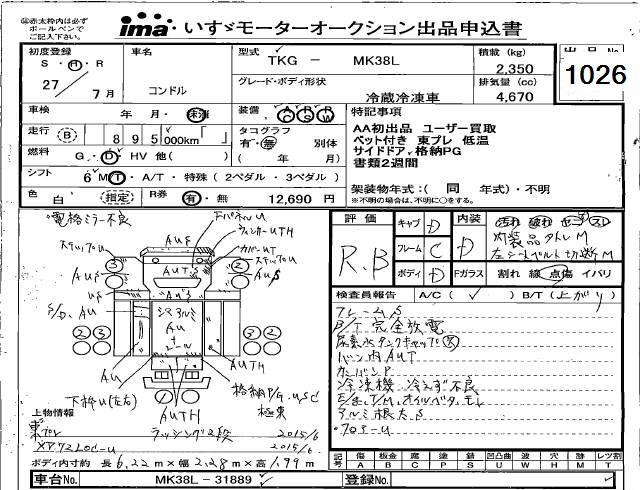 ※赤太枠内は必ず
ボールペンで
ご記入下さい。
ima いすゞモーターオークション出品申込書
初度登録
S・H・R
27/7月
車名
コンドル
型式
TKG － MK38L
グレード・ボディ形状
冷蔵冷凍車
積載(kg)
2,350
排気量(cc)
4,670
出品No.
1026
車検 年 月・未・済
走行 B 895,000km「 」
燃料 G・D・HV 他( )
シフト 6 MT・A/T・特殊(2ペダル・3ペダル)
色 白 指定
R券 有・無 12,690円
装備 A/C P/S P/W
タコグラフ
有・無 別体
( 年 月)
特記事項
AA初出品 ユーザー買取
ベット付き 東プレ 低温
サイドドア,格納PG
書類2週間
架装物年式:( 同 年式)・不明
※不明の場合は、不明に○をする。
・電格ミラー不良
評価
R.B
キャブ D
フレーム C
ボディ D
内装 D
汚れ 破れ コゲ スレ
内装品タトレM
左シートベルト切断M
Fガラス 割れ 線 点傷 イバリ
検査員報告 A/C(✓) B/T(上がり)
フレームS
B/T完全放電
尿素水タンクキャップ欠
バン内AUT
カンバンP
冷凍機 冷えず不良
E/g,T/M,オイルバタ,モレ
アルミ根太S
・フロアーU
ステップU
AUS
AUTS
AUTH
下枠U(左右)
格納P/G.USC
極東
上物情報
東プレ
ラッシング2段
2015/6
XV72LOC-U
2015/6
ボディ内寸約 長6.22m×幅2.28m×高1.99m
記号 傷A 板金B 腐C 塗P 錆S 凹凸曲U 波W 穴H 跡M レツ割T
車台No. MK38L-31889
登録No.